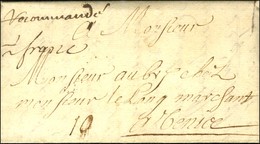 recommandé
a Monsieur
Monsieur aubert chez
monsieur le Long marchant
A Venice
10